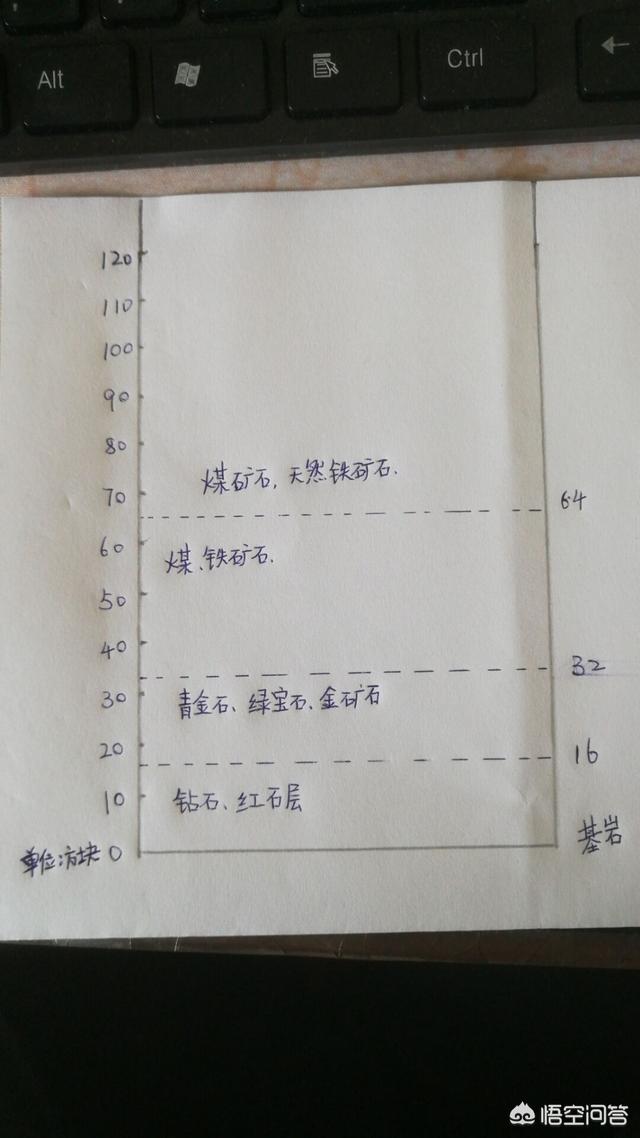 Alt
Ctrl
120
110
100
90
80
煤矿石, 天然铁矿石.
70
64
60
煤、铁矿石.
50
40
32
30
青金石、绿宝石、金矿石
20
16
10
钻石、红石层
基岩
单位:方块 0
悟空问答